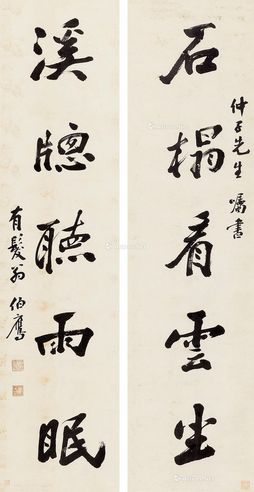 仲子先生嘱書
石榻看雲坐
溪牕聽雨眠
有髮翁伯鷹